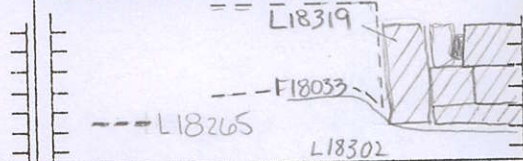 L18319
F18033
L18265
L18302